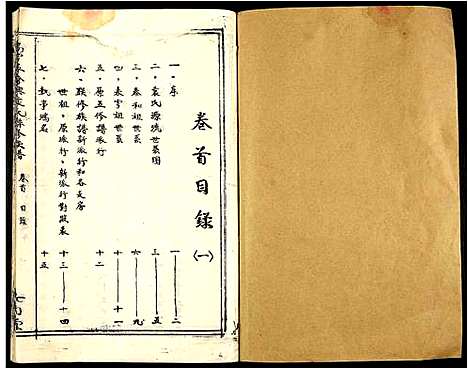 卷首目錄(一)
一、序 一——二
二、袁氏源流世裔圖 三——五
三、泰和祖世裔 六——九
四、泰亨祖世裔 十——十一
五、原五修譜派行 十二
六、聯修族譜新派行和各支房
世祖、原派行、新派行對照表 十三——十四
七、執事鴻名 十五
卷首 目錄